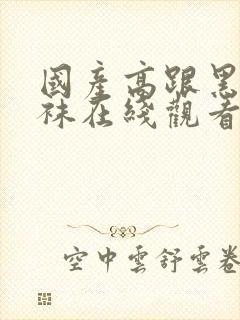 國產高跟黑
袜在綫觀看
空中雲舒雲卷